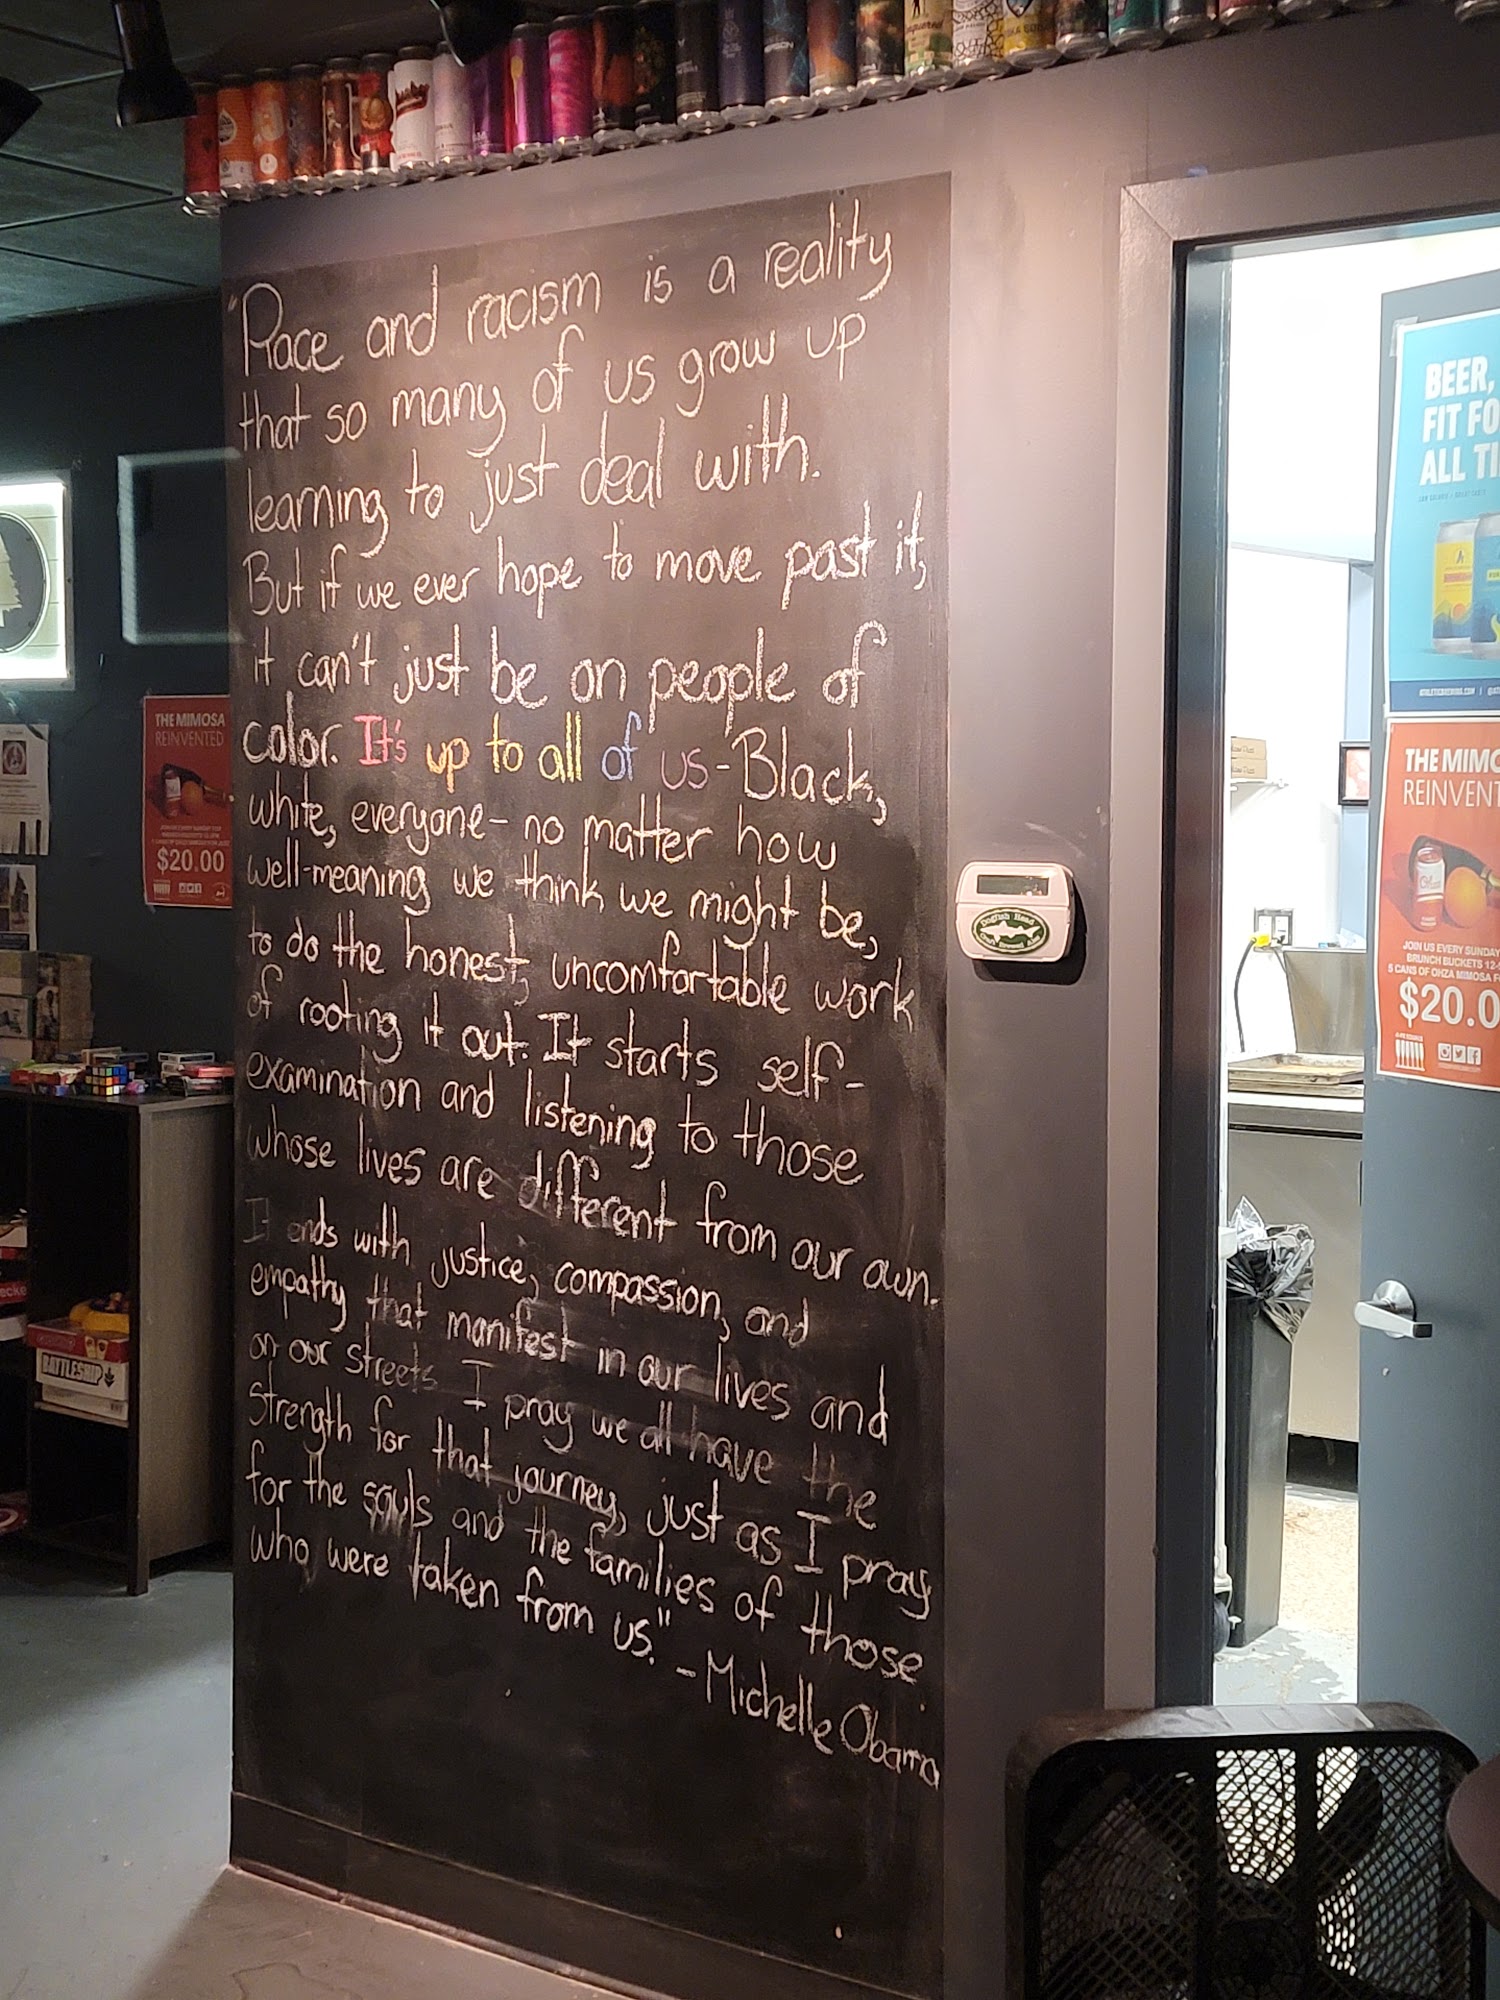 "Race and racism is a reality
that so many of us grow up
learning to just deal with.
But if we ever hope to move past it,
it can't just be on people of
color. It's up to all of us - Black,
white, everyone - no matter how
well-meaning we think we might be,
to do the honest, uncomfortable work
of rooting it out. It starts self-
examination and listening to those
whose lives are different from our own.
It ends with justice, compassion, and
empathy that manifest in our lives and
on our streets. I pray we all have the
strength for that journey, just as I pray
for the souls and the families of those
who were taken from us."
- Michelle Obama
THE MIMOSA
REINVENTED
$20.00
BATTLESHIP
Dogfish Head
Craft Brewed Ales
BEER,
FIT FO
ALL TI
THE MIMO
REINVENT
JOIN US EVERY SUNDAY
BRUNCH BUCKETS 12-
5 CANS OF OHZA MIMOSA F
$20.0